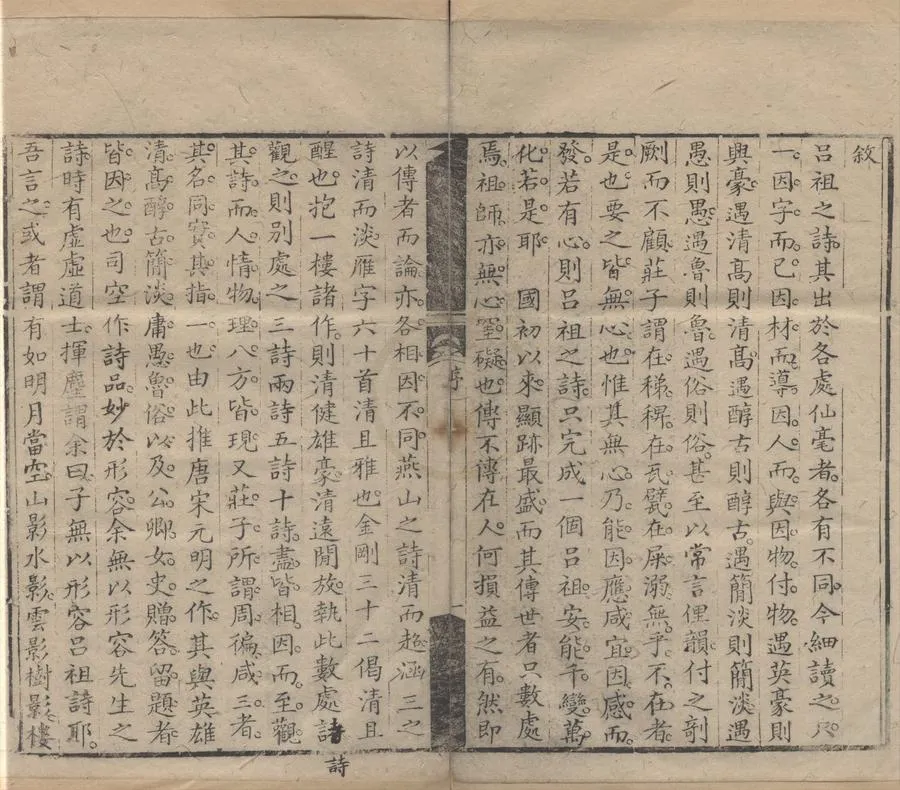 敘
呂祖之詩其出於各處仙毫者各有不同今細讀之只
一因字而已因材而導因人而與因物付物遇英豪則
興豪遇清高則清高遇醇古則醇古遇簡淡則簡淡遇
愚則愚遇魯則魯遇俗則俗甚至以常言俚韻付之剞
劂而不顧莊子謂在稊稗在瓦甓在屎溺無乎不在者
是也要之皆無心也惟其無心乃能因應咸宜因感而
發若有心則呂祖之詩只完成一個呂祖安能千變萬
化若是耶 國初以來顯跡最盛而其傳世者只數處
焉祖師亦無心窒礙也傳不傳在人何損益之有然即
序
一
以傳者而論亦各相因不同燕山之詩清而超涵三之
詩清而淡雁字六十首清且雅也金剛三十二偈清且
醒也抱一樓諸作則清健雄豪清遠閒放執此數處詩
觀之則別處之三詩兩詩五詩十詩盡皆相因而至觀
其詩而人情物理八方皆現又莊子所謂周徧咸三者
其名同實其指一也由此推唐宋元明之作其與英雄
清高醇古簡淡庸愚魯俗以及公卿女史贈答留題者
皆因之也司空作詩品妙於形容余無以形容先生之
詩時有虛虛道士揮麈謂余曰子無以形容呂祖詩耶
吾言之或者謂有如明月當空山影水影雲影樹影樓
詩